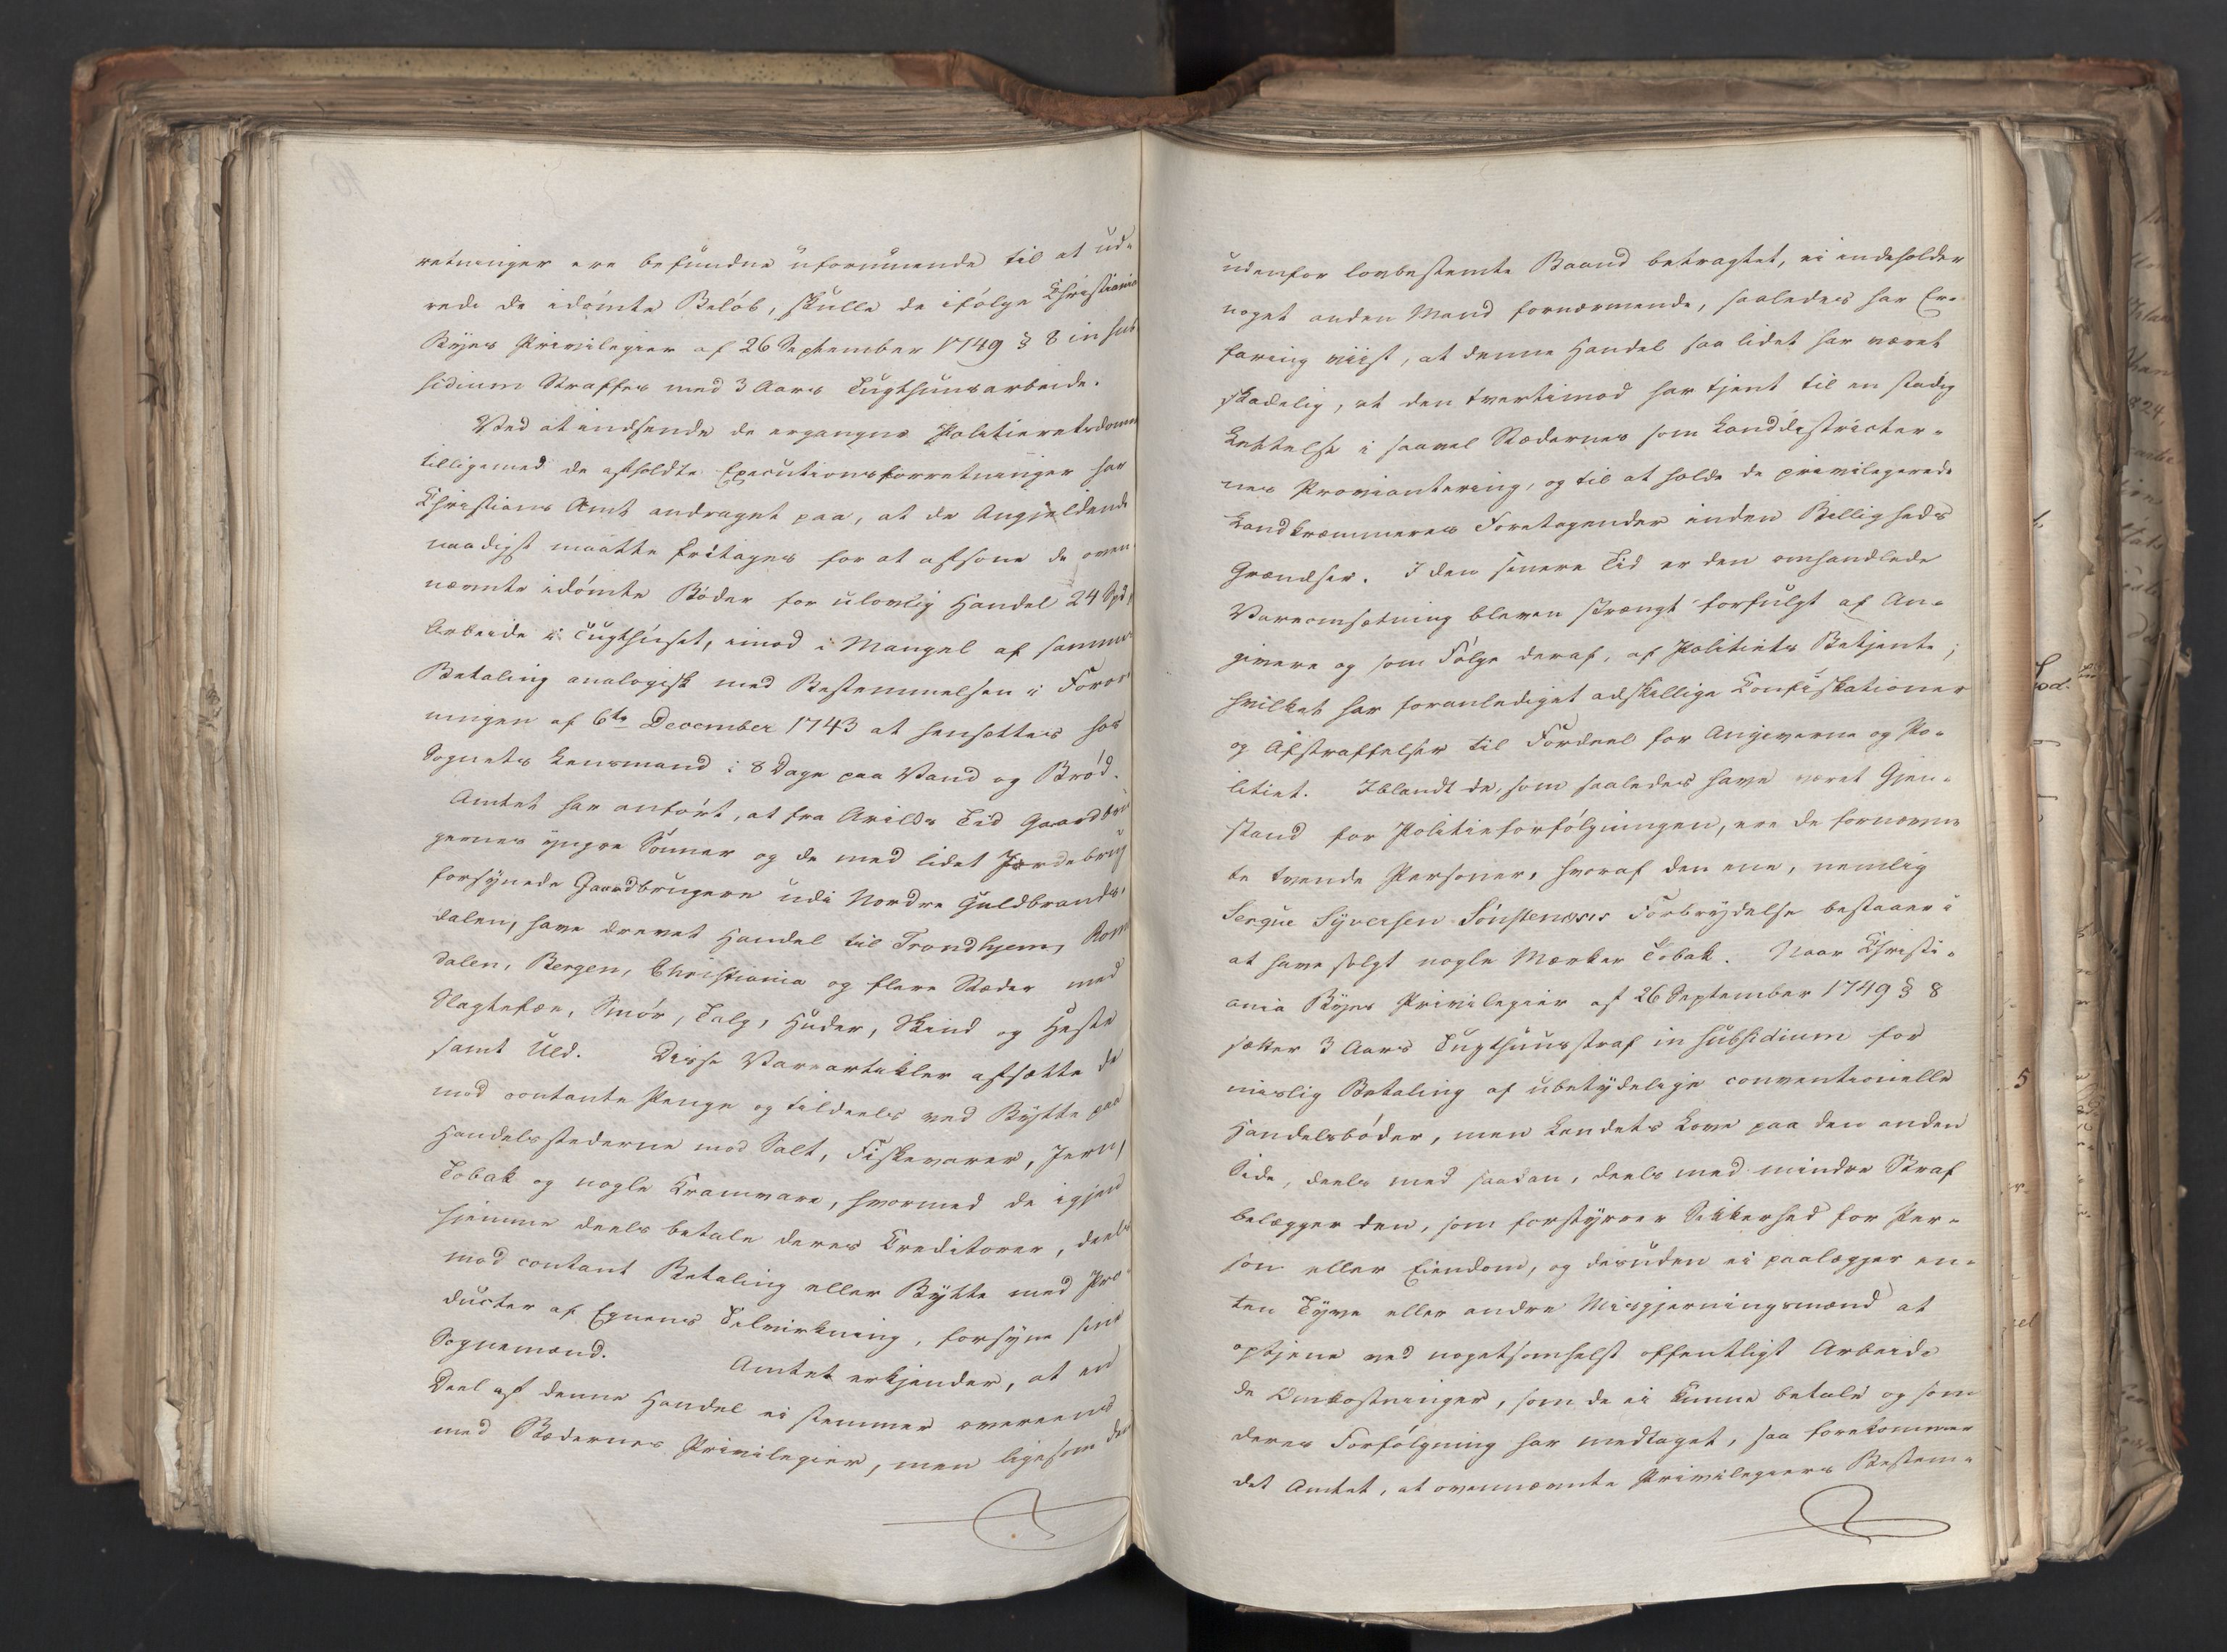 retninger ere befundne uformuende til at ud-
rede de idømte Beløb, skulle de ifølge Christiania
Byes Privilegier af 26 September 1749 § 8 in sub
sidium Straffes med 3 Aars Tugthuusarbeide.
Ved at indsende de ergangne Politieretsdomme
tilligemed de afholdte Executionsforretninger har
Christians Amt andraget paa, at de Angjeldende
naadigst maatte fritages for at afsone de oven
nævnte idømte Bøder for ulovlig Handel 24 Spd,
Arbeide i Tugthuset, imod i Mangel af samme
Betaling analogisk med Bestemmelsen i Foror
ningen af 6te December 1743 at hensættes hos
Sognets Lensmand i 8 Dage paa Vand og Brød.
Amtet har anført, at fra Arilds Tid Gaardbru
gernes yngre Sønner og de med lidet Jordebrug
forsynede Gaardbrugere udi Nordre Guldbrands-
dalen, have drevet Handel til Trondhjem, Rom
dalen, Bergen, Christiania og flere Stæder med
Slagtefæe, Smør, Talg, Huder, Skind og Heste
samt Uld. Disse Vareartikler afsætte de
mod contante Penge og tildeels ved Bytte paa
Handelsstederne mod Salt, Fiskevarer, Jern,
Tobak og nogle Kramvare, hvormed de igjen
hjemme deels betale deres Creditorer, deels
mod contant Betaling eller Bytte med Pro-
ducter af Egnens Tilvirkning, forsyne sine
Sognemænd. Amtet erkjender, at en
Deel af denne Handel ei stemmer overeens
med Stædernes Privilegier, men ligesom den
udenfor lovbestemte Baand betragtet, ei indeholder
noget anden Mand fornærmende, saaledes har Er-
faring viist, at denne Handel saa lidet har været
skadelig, at den tvertimod har tjent til en stadig
Lettelse i saavel Stædernes som Landdistricter-
nes Proviantering, og til at holde de privilegerede
Landkræmmeres Foretagender inden Billigheds
Grændser. I den senere Tid er den omhandlede
Vareomsætning bleven strængt forfulgt af An-
givere og som Følge deraf, af Politiets Betjente;
hvilket har foranlediget adskillige Confiskationer
og Afstraffelser til Fordeel for Angiverne og Po-
litiet. Iblandt de, som saaledes have været Gjen-
stand for Politieforfølgningen, ere de fornævn-
te tvende Personer, hvoraf den ene, nemlig
Sergue Syversen Sønstenæses Forbrydelse bestaaer i
at have solgt nogle Mærker Tobak. Naar Christi-
ania Byes Privilegier af 26 September 1749 § 8
sætter 3 Aars Tugthuusstraf in subsidium for
mislig Betaling af ubetydelige conventionelle
Handelsbøder, men Landets Love paa den anden
Side, deels med saadan, deels med mindre Straf
belægger den, som forstyrrer Sikkerhed for Per-
son eller Eiendom, og desuden ei paalægger en-
ten Tyve eller andre Misgjerningsmænd at
optjene ved nogetsomhelst offentligt Arbeide
de Omkostninger, som de ei kunne betale og som
deres Forfølgning har medtaget, saa forekommer
det Amtet, at ovennævnte Privilegiers Bestem-